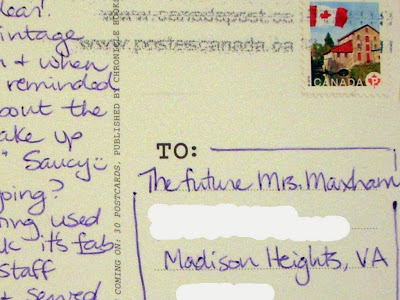 lear!
intage
n + when
reminded
bout the
ake up
" Saucy
ping?
ing used
k it's fab
staff
+ served
www.canadapost.ca
www.postescanada.ca
CANADA P
COMING ON: 30 POSTCARDS, PUBLISHED BY CHRONICLE BOOKS
TO:
The future Mrs. Maxham
Madison Heights, VA